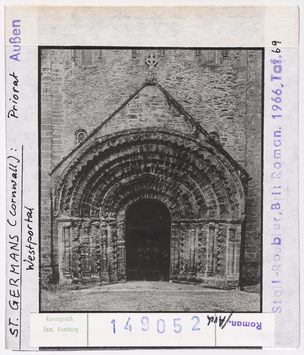 ST. GERMANS (Cornwall): Priorat Außen
Westportal
Stoll-Roubier, Brit. Roman. 1966, Taf. 69
Kunstgesch.
Sem. Hamburg
149052
Roman./Ard